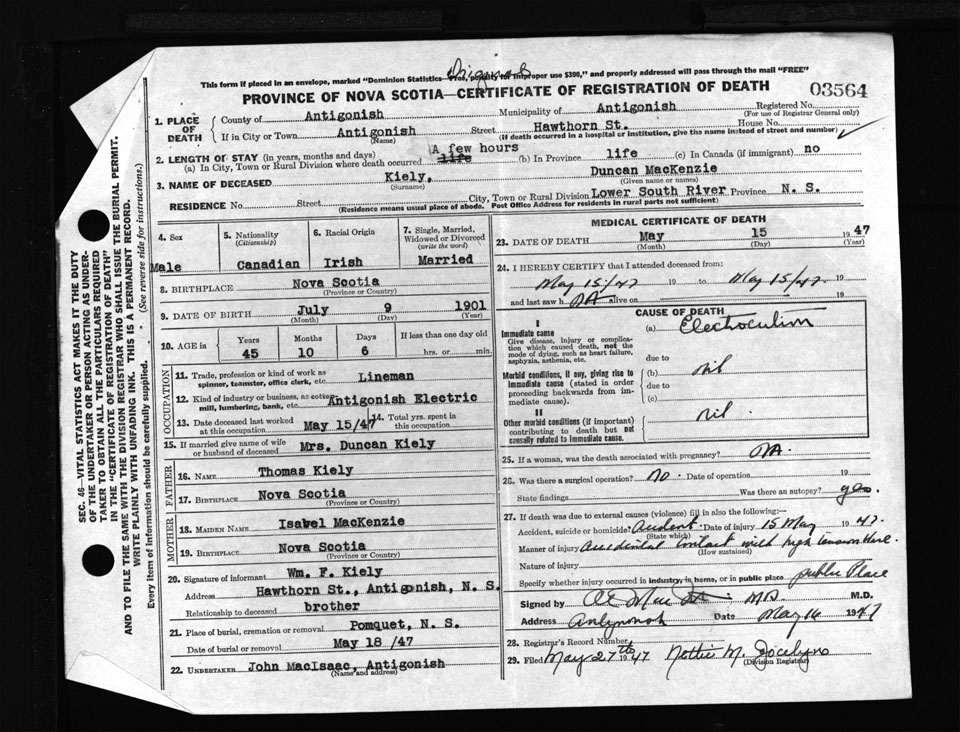 Original
This form if placed in an envelope, marked "Dominion Statistics—Free, penalty for improper use $300," and properly addressed will pass through the mail "FREE"
PROVINCE OF NOVA SCOTIA—CERTIFICATE OF REGISTRATION OF DEATH 03564
1. PLACE OF DEATH County of Antigonish Municipality of Antigonish Registered No.
(For use of Registrar General only)
If in City or Town Antigonish Street Hawthorn St. House No.
(Name) (If death occurred in a hospital or institution, give the name instead of street and number)
2. LENGTH OF STAY (in years, months and days) A few hours
(a) In City, Town or Rural Division where death occurred life (b) In Province life (c) In Canada (if immigrant) no
3. NAME OF DECEASED Kiely, Duncan MacKenzie
(Surname) (Given name or names)
RESIDENCE No. Street City, Town or Rural Division Lower South River Province N. S.
(Residence means usual place of abode. Post Office Address for residents in rural parts not sufficient)
4. Sex 5. Nationality (Citizenship) 6. Racial Origin 7. Single, Married, Widowed or Divorced (write the word)
Male Canadian Irish Married
8. BIRTHPLACE Nova Scotia
(Province or Country)
9. DATE OF BIRTH July 9 1901
(Month) (Day) (Year)
10. AGE in Years Months Days If less than one day old
45 10 6 hrs. or min.
OCCUPATION
11. Trade, profession or kind of work as spinner, teamster, office clerk, etc. Lineman
12. Kind of industry or business, as cotton mill, lumbering, bank, etc. Antigonish Electric
13. Date deceased last worked at this occupation May 15/47 14. Total yrs. spent in this occupation
15. If married give name of wife or husband of deceased Mrs. Duncan Kiely
FATHER
16. NAME Thomas Kiely
17. BIRTHPLACE Nova Scotia
(Province or Country)
MOTHER
18. MAIDEN NAME Isabel MacKenzie
19. BIRTHPLACE Nova Scotia
(Province or Country)
20. Signature of informant Wm. F. Kiely
Address Hawthorn St., Antigonish, N. S.
Relationship to deceased brother
21. Place of burial, cremation or removal Pomquet, N. S.
Date of burial or removal May 18 /47
22. UNDERTAKER John MacIsaac, Antigonish
(Name and address)
MEDICAL CERTIFICATE OF DEATH
23. DATE OF DEATH May 15 1947
(Month) (Day) (Year)
24. I HEREBY CERTIFY that I attended deceased from:
May 15/47 19 to May 15/47. 19
and last saw h DA alive on 19
CAUSE OF DEATH
I
Immediate cause (a) Electrocution
Give disease, injury or complication which caused death, not the mode of dying, such as heart failure, asphyxia, asthenia, etc.
due to
Morbid conditions, if any, giving rise to immediate cause (stated in order proceeding backwards from immediate cause). (b) nil
due to
(c)
II
Other morbid conditions (if important) contributing to death but not causally related to immediate cause. nil.
25. If a woman, was the death associated with pregnancy? DA.
26. Was there a surgical operation? no. Date of operation 19
State findings Was there an autopsy? yes.
27. If death was due to external causes (violence) fill in also the following:—
Accident, suicide or homicide? Accident. Date of injury 15 May 1947.
(State which)
Manner of injury Accidental contact with high tension line.
(How sustained)
Nature of injury
Specify whether injury occurred in industry, in home, or in public place public Place
Signed by MD M.D.
Address Antigonish Date May 16 1947
28. Registrar's Record Number
29. Filed May 27th 1947 Nottie M. Jocelyn
(Division Registrar)
SEC. 46—VITAL STATISTICS ACT MAKES IT THE DUTY
OF THE UNDERTAKER OR PERSON ACTING AS UNDERTAKER TO OBTAIN ALL THE PARTICULARS REQUIRED
IN THE "CERTIFICATE OF REGISTRATION OF DEATH"
AND TO FILE THE SAME WITH THE DIVISION REGISTRAR WHO SHALL ISSUE THE BURIAL PERMIT.
WRITE PLAINLY WITH UNFADING INK. THIS IS A PERMANENT RECORD.
Every item of Information should be carefully supplied. (See reverse side for instructions.)